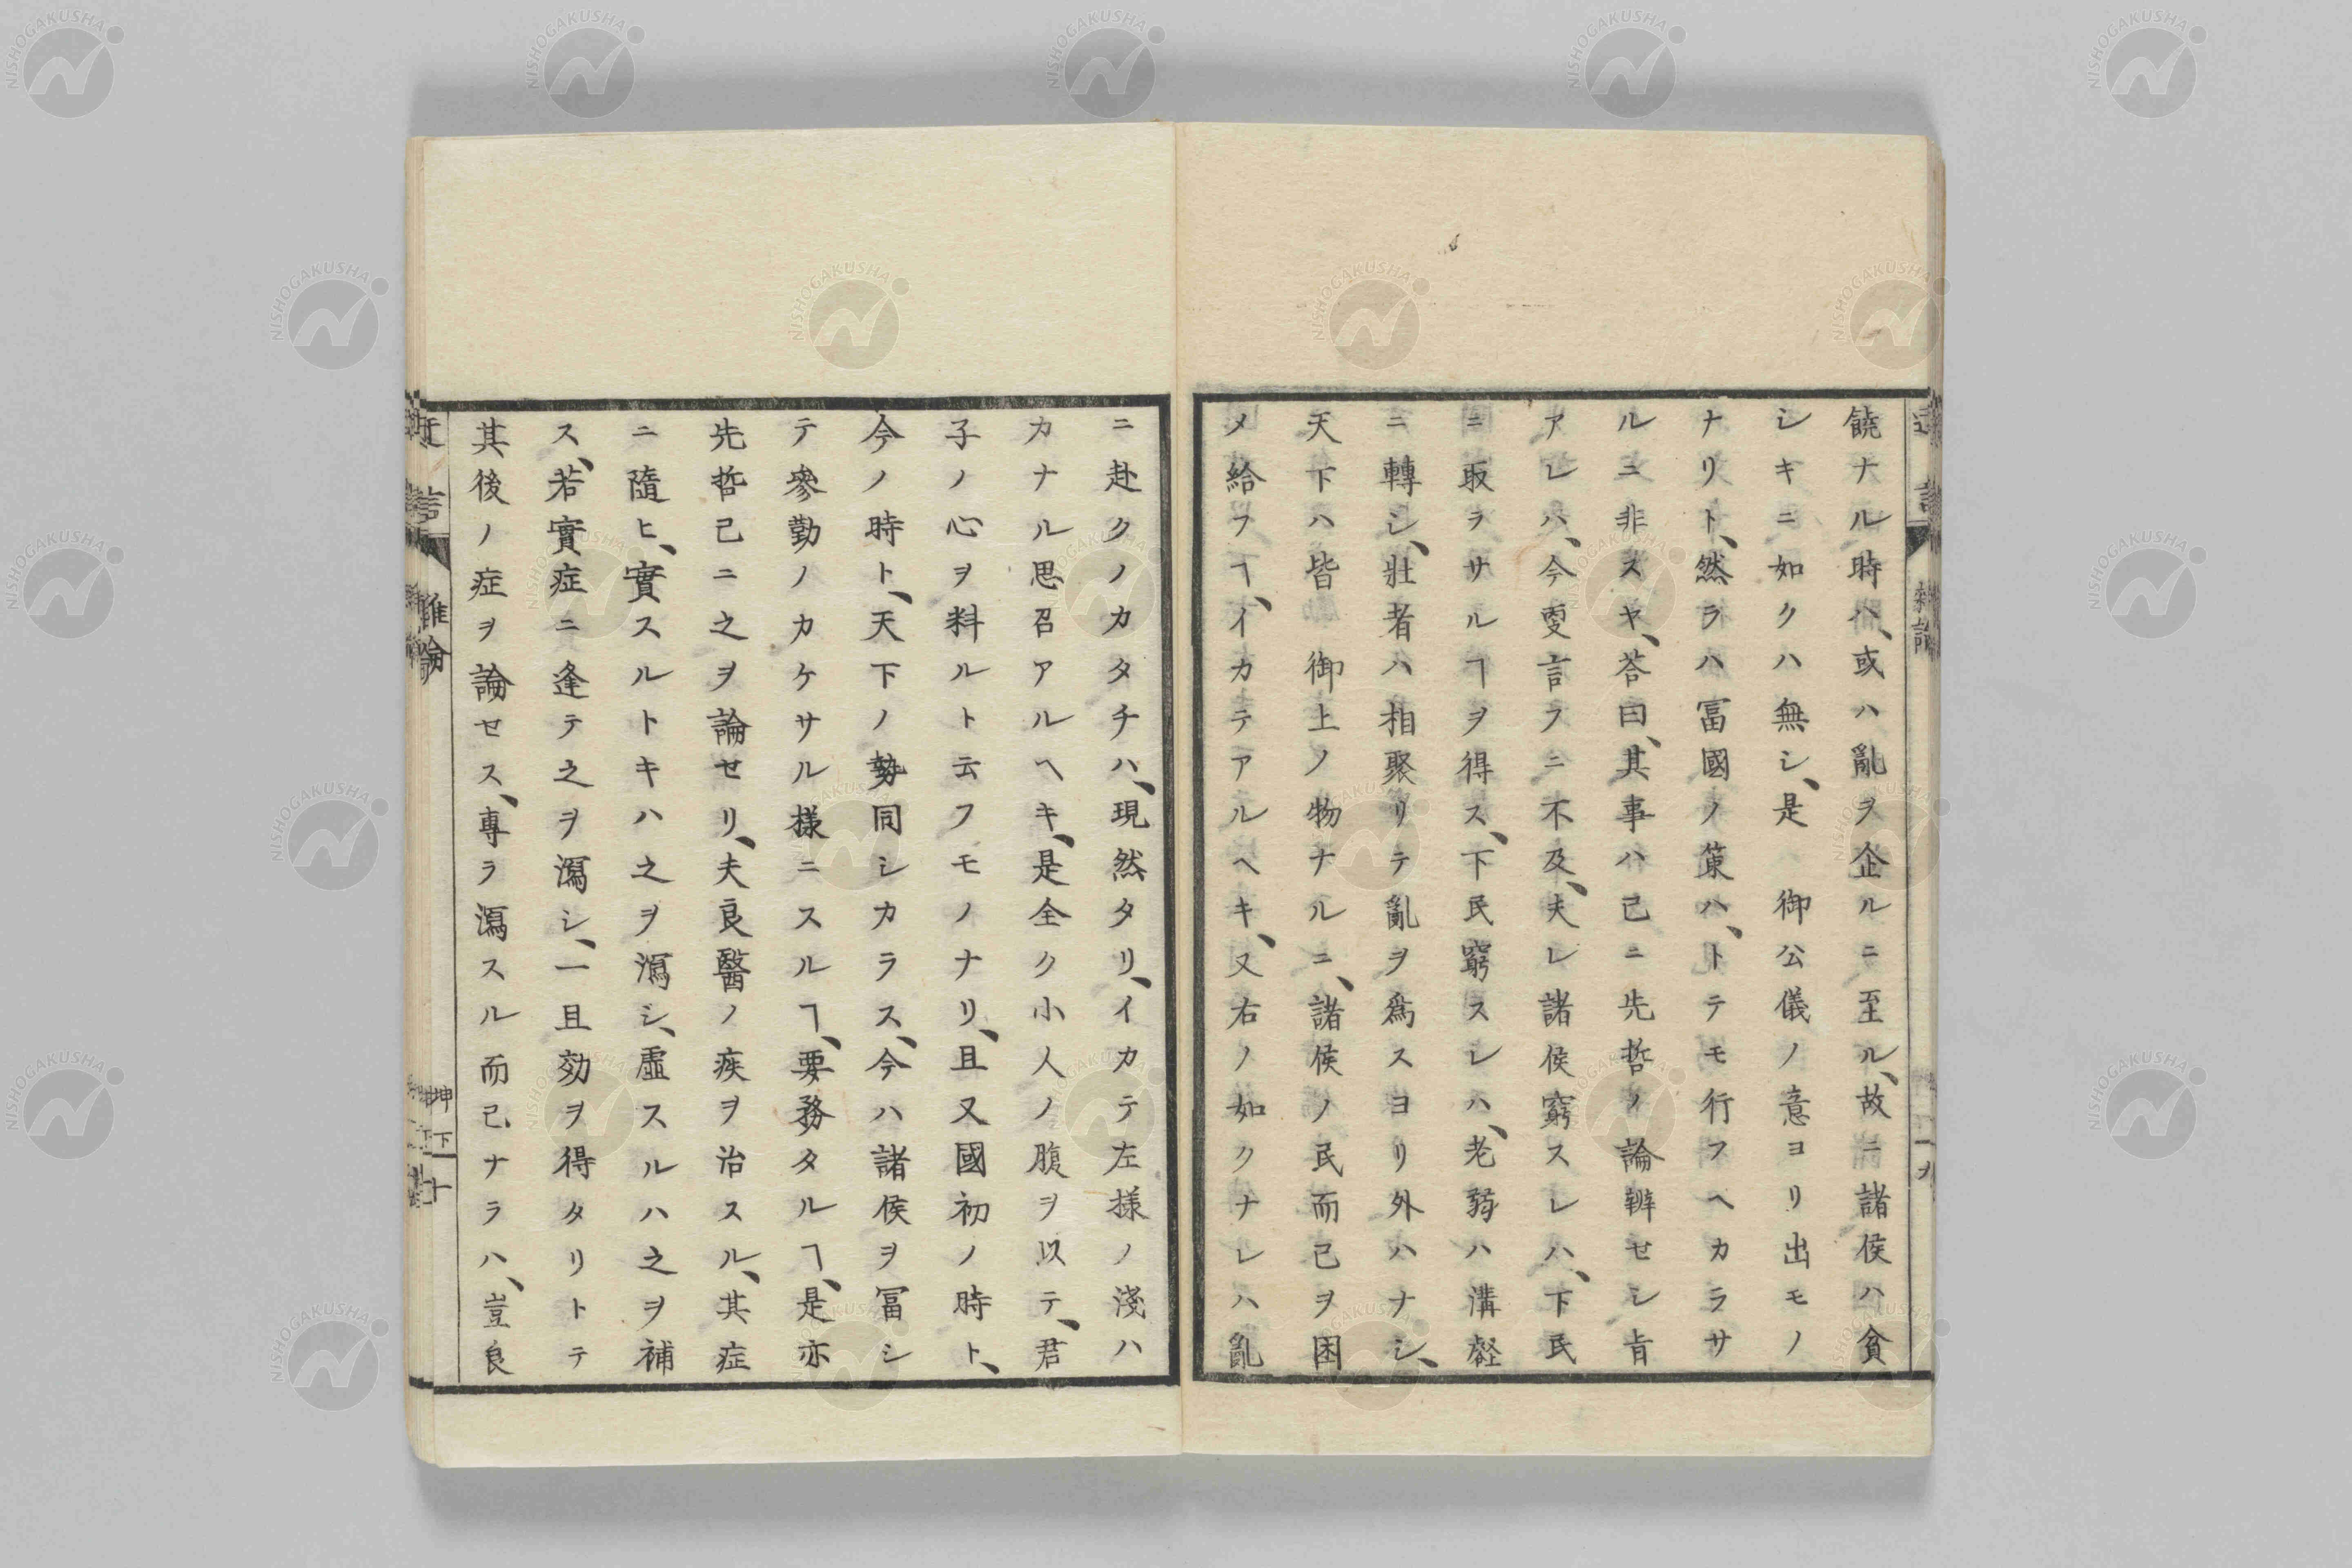 饒ナル時ハ、或ハ亂ヲ企ルニ至ル、故ニ諸侯ハ貧
シキニ如クハ無シ、是 御公儀ノ意ヨリ出モノ
ナリト、然ラハ冨國ノ策ハ、トテモ行フヘカラサ
ルニ非スヤ、荅曰、其事ハ已ニ先哲ノ論辨セシ旨
アレハ、今更言フニ不及、夫レ諸侯窮スレハ、下民
ニ取ヲサルヿヲ得ス、下民窮スレハ、老弱ハ溝壑
ニ轉シ、壯者ハ相聚リテ亂ヲ爲スヨリ外ハナシ、
天下ハ皆 御上ノ物ナルニ、諸侯ノ民而已ヲ困
メ給フヿ、イカテアルヘキ、又右ノ如クナレハ亂
ニ赴クノカタチハ、現然タリ、イカテ左様ノ淺ハ
カナル思召アルヘキ、是全ク小人ノ腹ヲ以テ、君
子ノ心ヲ料ルト云フモノナリ、且又國初ノ時ト、
今ノ時ト、天下ノ勢同シカラス、今ハ諸侯ヲ冨シ
テ參勤ノカケサル様ニスルヿ、要務タルヿ、是亦
先哲已ニ之ヲ論セリ、夫良醫ノ疾ヲ治スル、其症
ニ隨ヒ、實スルトキハ之ヲ瀉シ、虛スルハ之ヲ補
ス、若實症ニ逢テ之ヲ瀉シ、一旦効ヲ得タリトテ
其後ノ症ヲ論セス、專ラ瀉スル而已ナラハ、豈良
雜論
坤下
十
NISHOGAKUSHA